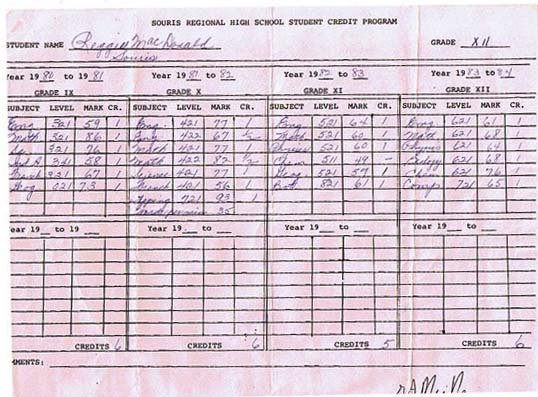 SOURIS REGIONAL HIGH SCHOOL STUDENT CREDIT PROGRAM
STUDENT NAME Reggie MacDonald GRADE XII
Souris
Year 1980 to 1981 Year 1981 to 82 Year 1982 to 83 Year 1983 to 84
GRADE IX GRADE X GRADE XI GRADE XII
SUBJECT LEVEL MARK CR. SUBJECT LEVEL MARK CR. SUBJECT LEVEL MARK CR. SUBJECT LEVEL MARK CR.
Eng 321 59 1 Eng. 421 77 1 Eng 521 64 1 Eng 621 61 1
Math 321 86 1 Eng 422 67 1/2 Math 521 60 1 Math 621 68 1
Sc 321 76 1 421 77 1 Physics 521 60 1 Physics 621 64 1
Ind A 341 58 1 Math 422 82 1/2 Chem 511 49 - 621 68 1
French 321 67 1 Science 421 77 1 Geog 521 57 1 Chem 621 76 1
Geog 021 73 1 French 421 56 1 821 61 1 Comp 721 65 1
Typing 721 93 1
35
Year 19 to 19 Year 19 to Year 19 to Year 19 to
CREDITS 6 CREDITS 6 CREDITS 5 CREDITS 6
MMENTS: